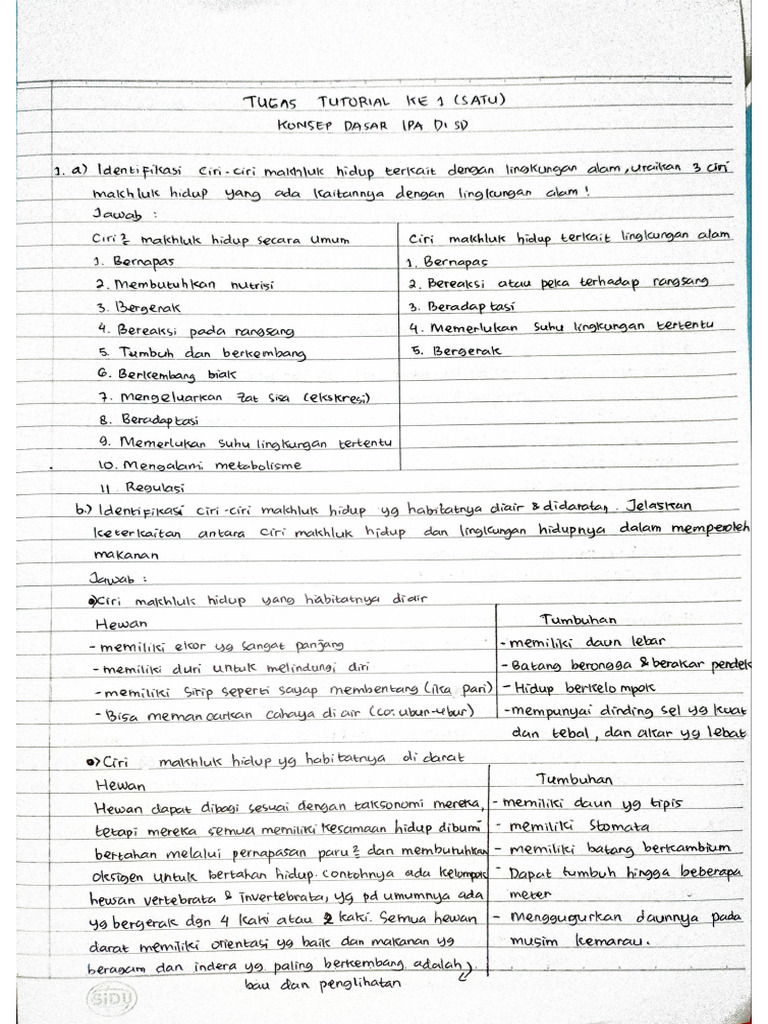 TUGAS TUTORIAL KE 1 (SATU)
KONSEP DASAR IPA DI SD
1. a) Identifikasi ciri-ciri makhluk hidup terkait dengan lingkungan alam, uraikan 3 ciri
makhluk hidup yang ada kaitannya dengan lingkungan alam!
Jawab :
Ciri² makhluk hidup secara umum
1. Bernapas
2. Membutuhkan nutrisi
3. Bergerak
4. Bereaksi pada rangsang
5. Tumbuh dan berkembang
6. Berkembang biak
7. Mengeluarkan zat sisa (ekskresi)
8. Beradaptasi
9. Memerlukan suhu lingkungan tertentu
10. Mengalami metabolisme
11 Regulasi
Ciri makhluk hidup terkait lingkungan alam
1. Bernapas
2. Bereaksi atau peka terhadap rangsang
3. Beradaptasi
4. Memerlukan suhu lingkungan tertentu
5. Bergerak
b.) Identifikasi ciri-ciri makhluk hidup yg habitatnya diair & didaratan. Jelaskan
keterkaitan antara ciri makhluk hidup dan lingkungan hidupnya dalam memperoleh
makanan
Jawab :
•) Ciri makhluk hidup yang habitatnya diair
Hewan
- memiliki ekor yg sangat panjang
- memiliki duri untuk melindungi diri
- memiliki sirip seperti sayap membentang (ika pari)
- Bisa memancarkan cahaya di air (co: ubur-ubur)
Tumbuhan
- memiliki daun lebar
- Batang berongga & berakar pendek
- Hidup berkelompok
- mempunyai dinding sel yg kuat
dan tebal, dan akar yg lebat
•) Ciri makhluk hidup yg habitatnya di darat
Hewan
Hewan dapat dibagi sesuai dengan taksonomi mereka,
tetapi mereka semua memiliki kesamaan hidup dibumi
bertahan melalui pernapasan paru² dan membutuhkan
oksigen untuk bertahan hidup. contohnya ada kelompok
hewan vertebrata & invertebrata, yg pd umumnya ada
yg bergerak dgn 4 kaki atau 2 kaki. Semua hewan
darat memiliki orientasi yg baik dan makanan yg
beragam dan indera yg paling berkembang adalah
bau dan penglihatan
Tumbuhan
- memiliki daun yg tipis
- memiliki stomata
- memiliki batang berkambium
- Dapat tumbuh hingga beberapa
meter
- Menggugurkan daunnya pada
musim kemarau.
SIDU